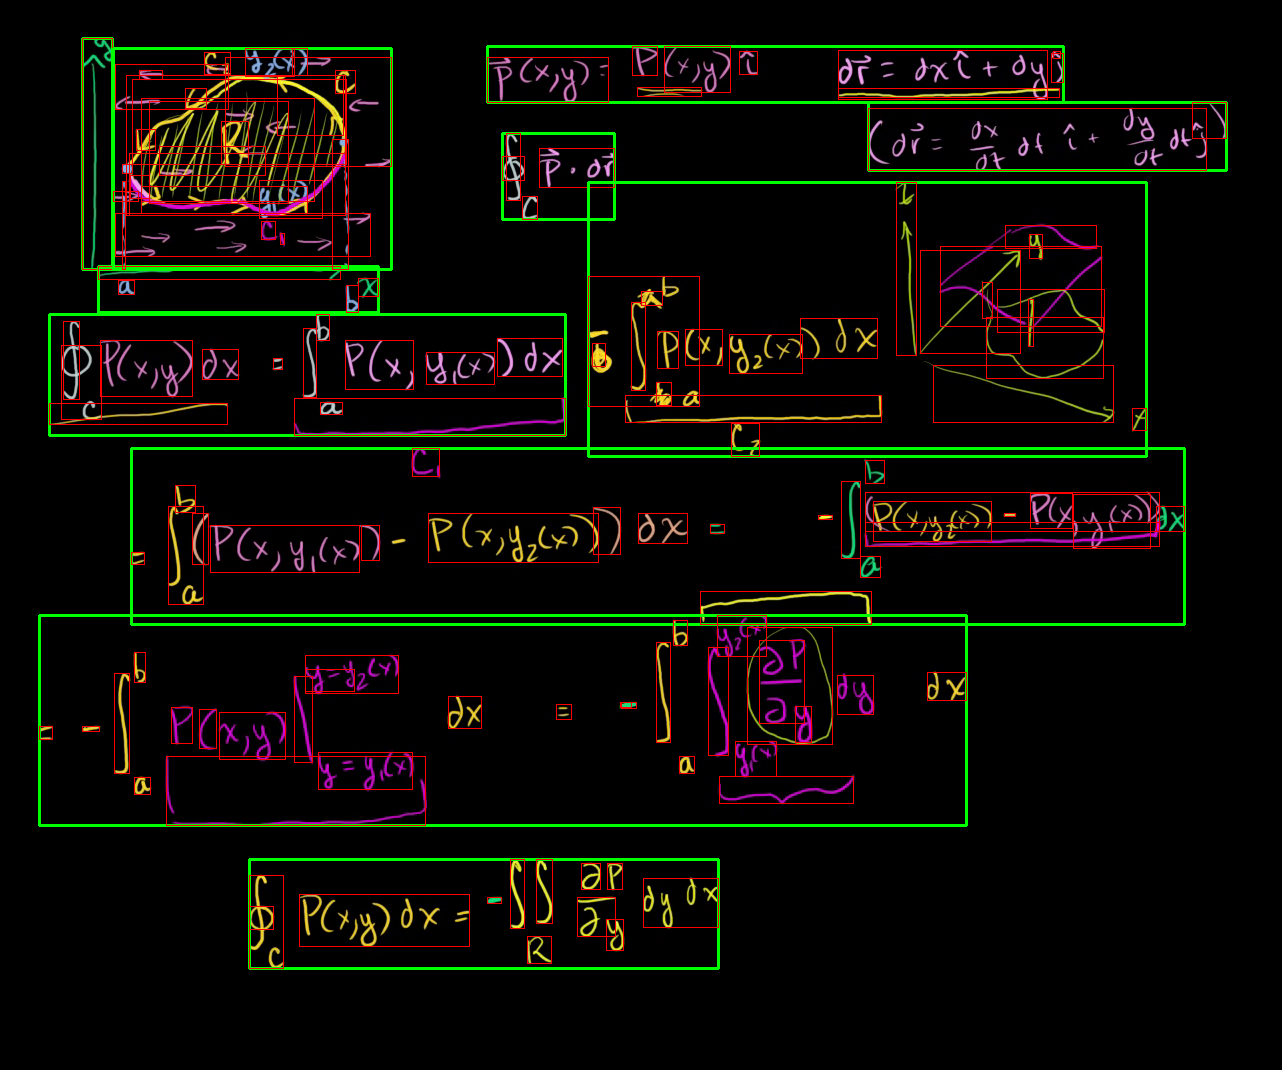 y
C₂ y₂(x)
C
R
y₁(x)
C₁
a b x
P⃗(x,y) = P(x,y) î
dr⃗ = dx î + dy ĵ
(dr⃗ = dx/dt dt î + dy/dt dt ĵ)
∮_C P⃗ · dr⃗
∮_C P(x,y) dx = ∫_a^b P(x, y₁(x)) dx
C₁
- ∫_a^b P(x, y₂(x)) dx
C₂
y
x
= ∫_a^b (P(x, y₁(x)) - P(x, y₂(x))) dx = - ∫_a^b (P(x, y₂(x)) - P(x, y₁(x))) dx
= - ∫_a^b P(x,y) |_{y = y₁(x)}^{y = y₂(x)} dx = - ∫_a^b ∫_{y₁(x)}^{y₂(x)} ∂P/∂y dy dx
∮_C P(x,y) dx = - ∬_R ∂P/∂y dy dx